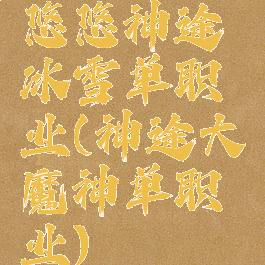 悠悠神途
冰雪单职
业(神途大
魔神单职
业)